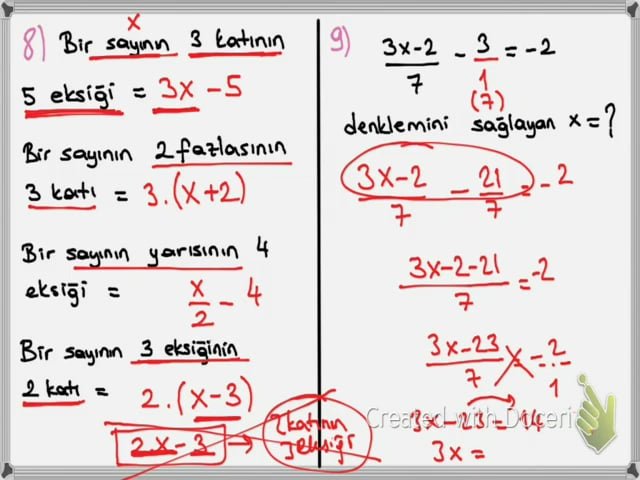 8) Bir sayının 3 katının
x
5 eksiği = 3x - 5
Bir sayının 2 fazlasının
3 katı = 3.(x+2)
Bir sayının yarısının 4
eksiği = x/2 - 4
Bir sayının 3 eksiğinin
2 katı = 2.(x-3)
2.x-3 → 2 katının
3 eksiği
9) 3x-2/7 - 3/1 = -2
(7)
denklemini sağlayan x=?
3x-2/7 - 21/7 = -2
3x-2-21/7 = -2
3x-23/7 = -2/1
3x-23 = -14
3x =
Created with Doceri